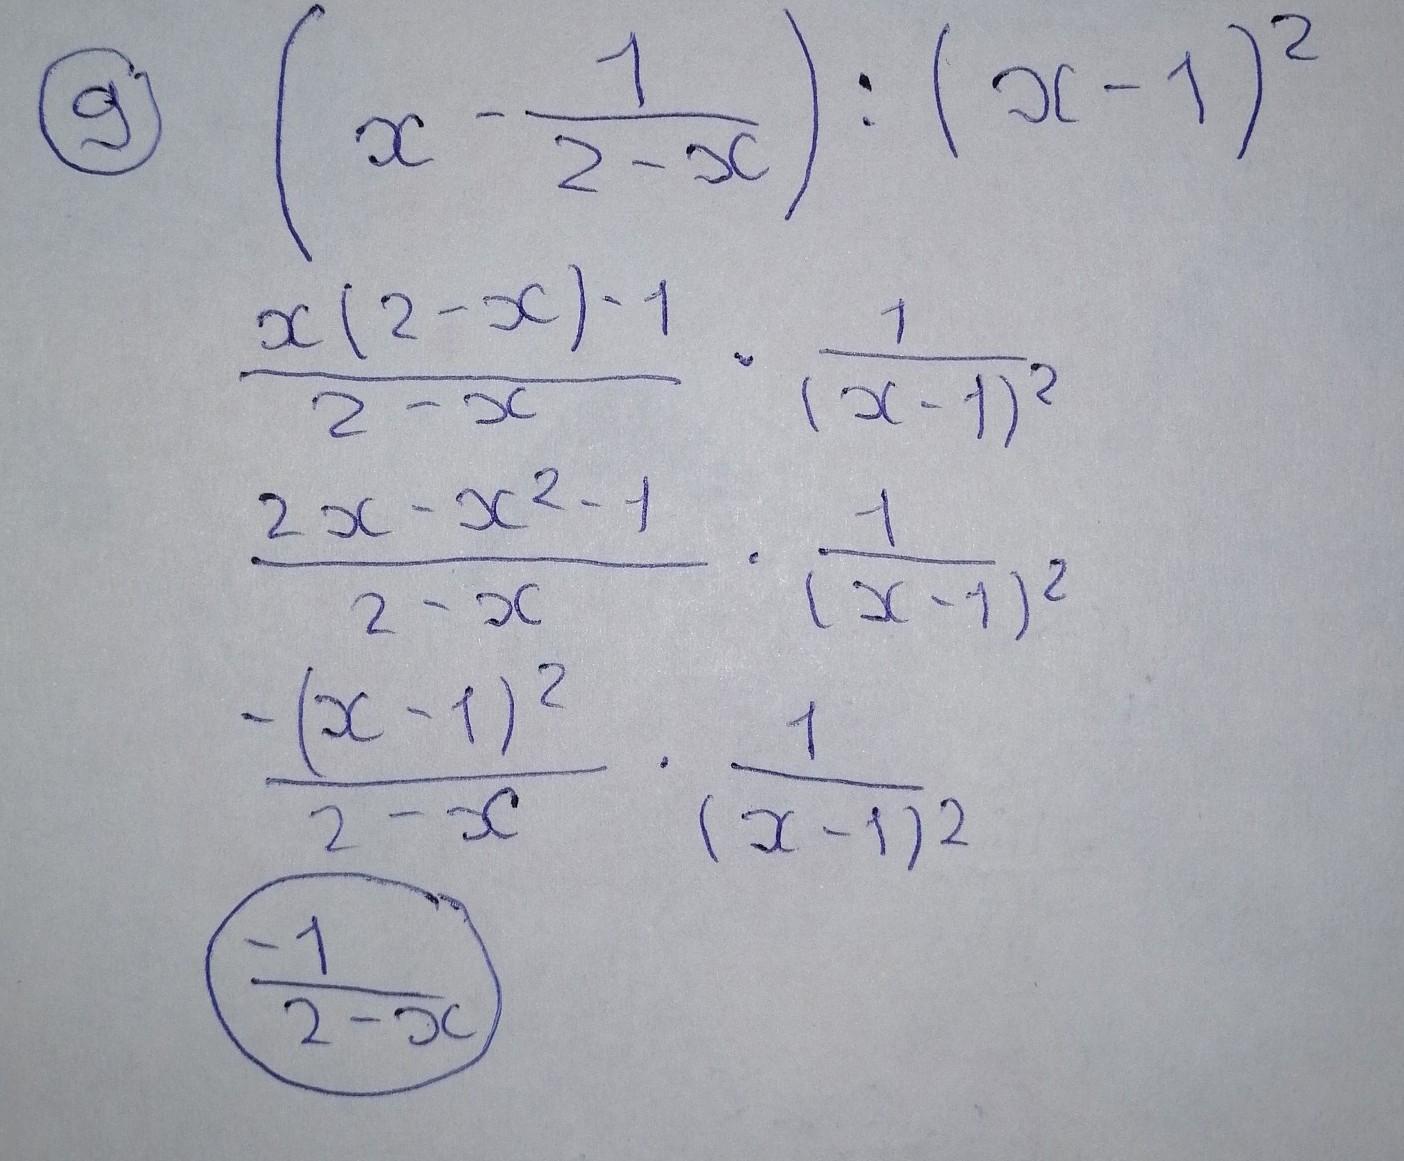 9 (x - 1/(2-x)) : (x-1)²
(x(2-x)-1)/(2-x) · 1/(x-1)²
(2x-x²-1)/(2-x) · 1/(x-1)²
-(x-1)²/(2-x) · 1/(x-1)²
-1/(2-x)